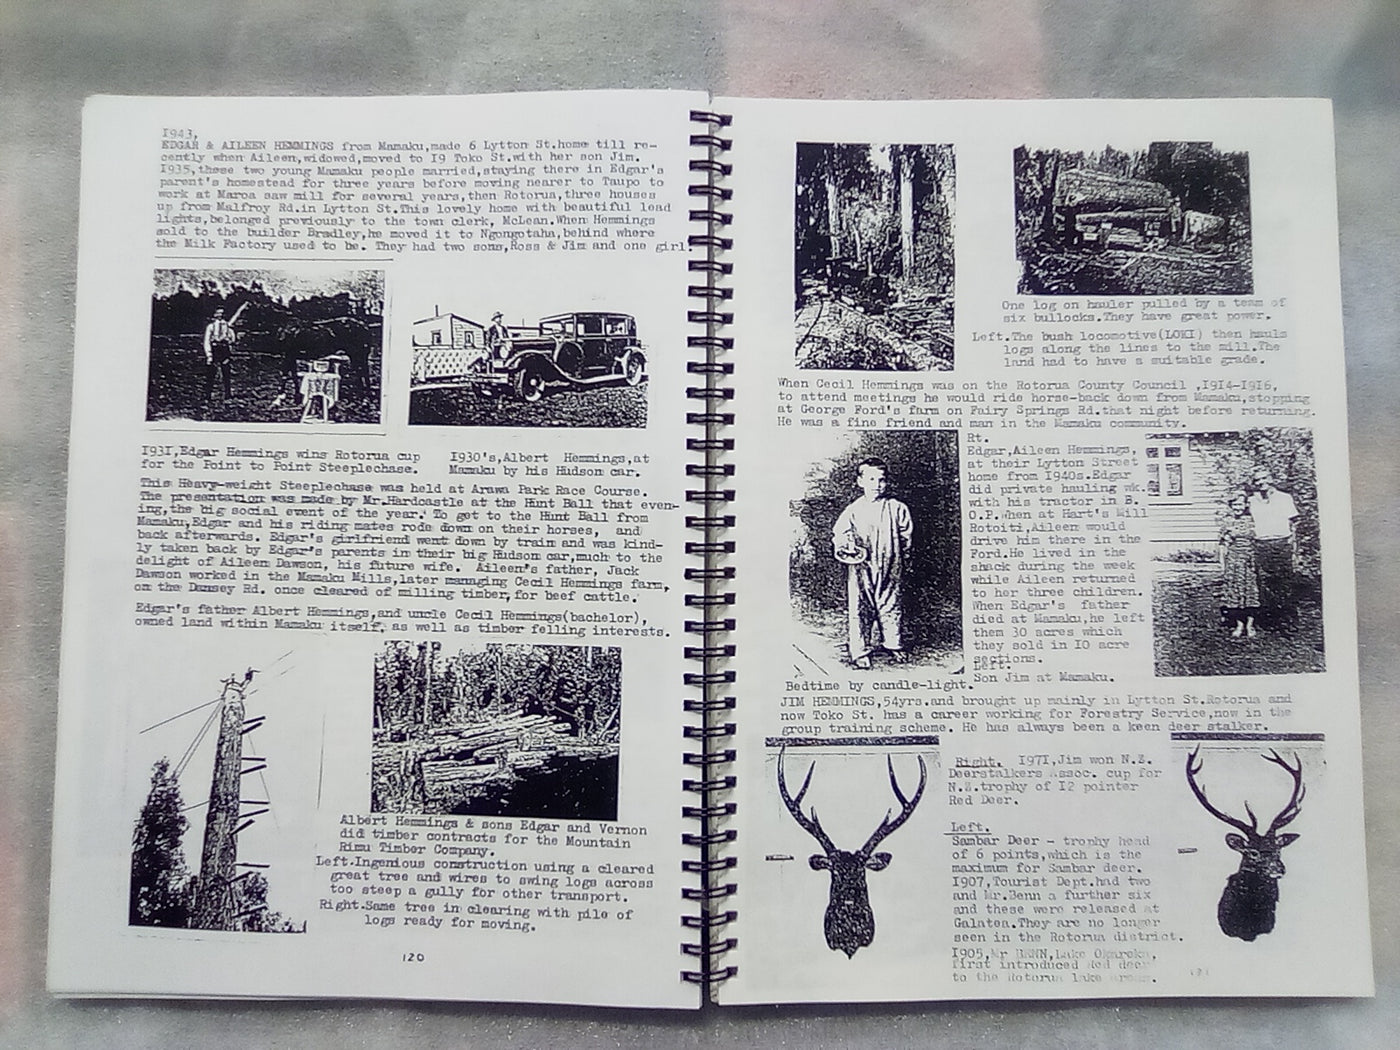 1943,
EDGAR & AILEEN HEMMINGS from Mamaku,made 6 Lytton St.home till re-
cently when Aileen,widowed,moved to I9 Toko St.with her son Jim.
I935,these two young Mamaku people married,staying there in Edgar's
parent's homestead for three years before moving nearer to Taupo to
work at Maroa saw mill for several years,then Rotorua,three houses
up from Malfroy Rd.in Lytton St.This lovely home with beautiful lead
lights,belonged previously to the town clerk, McLean.When Hemmings
sold to the builder Bradley,he moved it to Ngongotaha,behind where
the Milk Factory used to be. They had two sons,Ross & Jim and one girl.
I93I,Edgar Hemmings wins Rotorua cup
for the Point to Point Steeplechase.
I930's,Albert Hemmings,at
Mamaku by his Hudson car.
This Heavy-weight Steeplechase was held at Arawa Park Race Course.
The presentation was made by Mr.Hardcastle at the Hunt Ball that even-
ing,the big social event of the year. To get to the Hunt Ball from
Mamaku,Edgar and his riding mates rode down on their horses, and
back afterwards. Edgar's girlfriend went down by train and was kind-
ly taken back by Edgar's parents in their big Hudson car,much to the
delight of Aileen Dawson, his future wife. Aileen's father, Jack
Dawson worked in the Mamaku Mills,later managing Cecil Hemmings farm,
on the Dansey Rd. once cleared of milling timber,for beef cattle.
Edgar's father Albert Hemmings,and uncle Cecil Hemmings(bachelor),
owned land within Mamaku itself, as well as timber felling interests.
Albert Hemmings & sons Edgar and Vernon
did timber contracts for the Mountain
Rimu Timber Company.
Left.Ingenious construction using a cleared
great tree and wires to swing logs across
too steep a gully for other transport.
Right.Same tree in clearing with pile of
logs ready for moving.
120
One log on hauler pulled by a team of
six bullocks.They have great power.
Left.The bush locomotive(LOKI) then hauls
logs along the lines to the mill.The
land had to have a suitable grade.
When Cecil Hemmings was on the Rotorua County Council ,I9I4-I9I6,
to attend meetings he would ride horse-back down from Mamaku,stopping
at George Ford's farm on Fairy Springs Rd.that night before returning.
He was a fine friend and man in the Mamaku community.
Rt.
Edgar,Aileen Hemmings,
at their Lytton Street
home from I940s.Edgar
did private hauling wk.
with his tractor in B.
O.P.When at Hart's Mill
Rotoiti,Aileen would
drive him there in the
Ford.He lived in the
shack during the week
while Aileen returned
to her three children.
When Edgar's father
died at Mamaku,he left
them 30 acres which
they sold in IO acre
sections.
Left.
Son Jim at Mamaku.
Bedtime by candle-light.
JIM HEMMINGS,54yrs.and brought up mainly in Lytton St.Rotorua and
now Toko St. has a career working for Forestry Service,now in the
group training scheme. He has always been a keen deer stalker.
Right. I97I,Jim won N.Z.
Deerstalkers Assoc. cup for
N.Z.trophy of I2 pointer
Red Deer.
Left.
Sambar Deer - trophy head
of 6 points,which is the
maximum for Sambar deer.
I907,Tourist Dept.had two
and Mr.Benn a further six
and these were released at
Galatea.They are no longer
seen in the Rotorua district.
I905,Mr BENN,Lake Okareka,
first introduced Red deer
to the Rotorua lake areas.